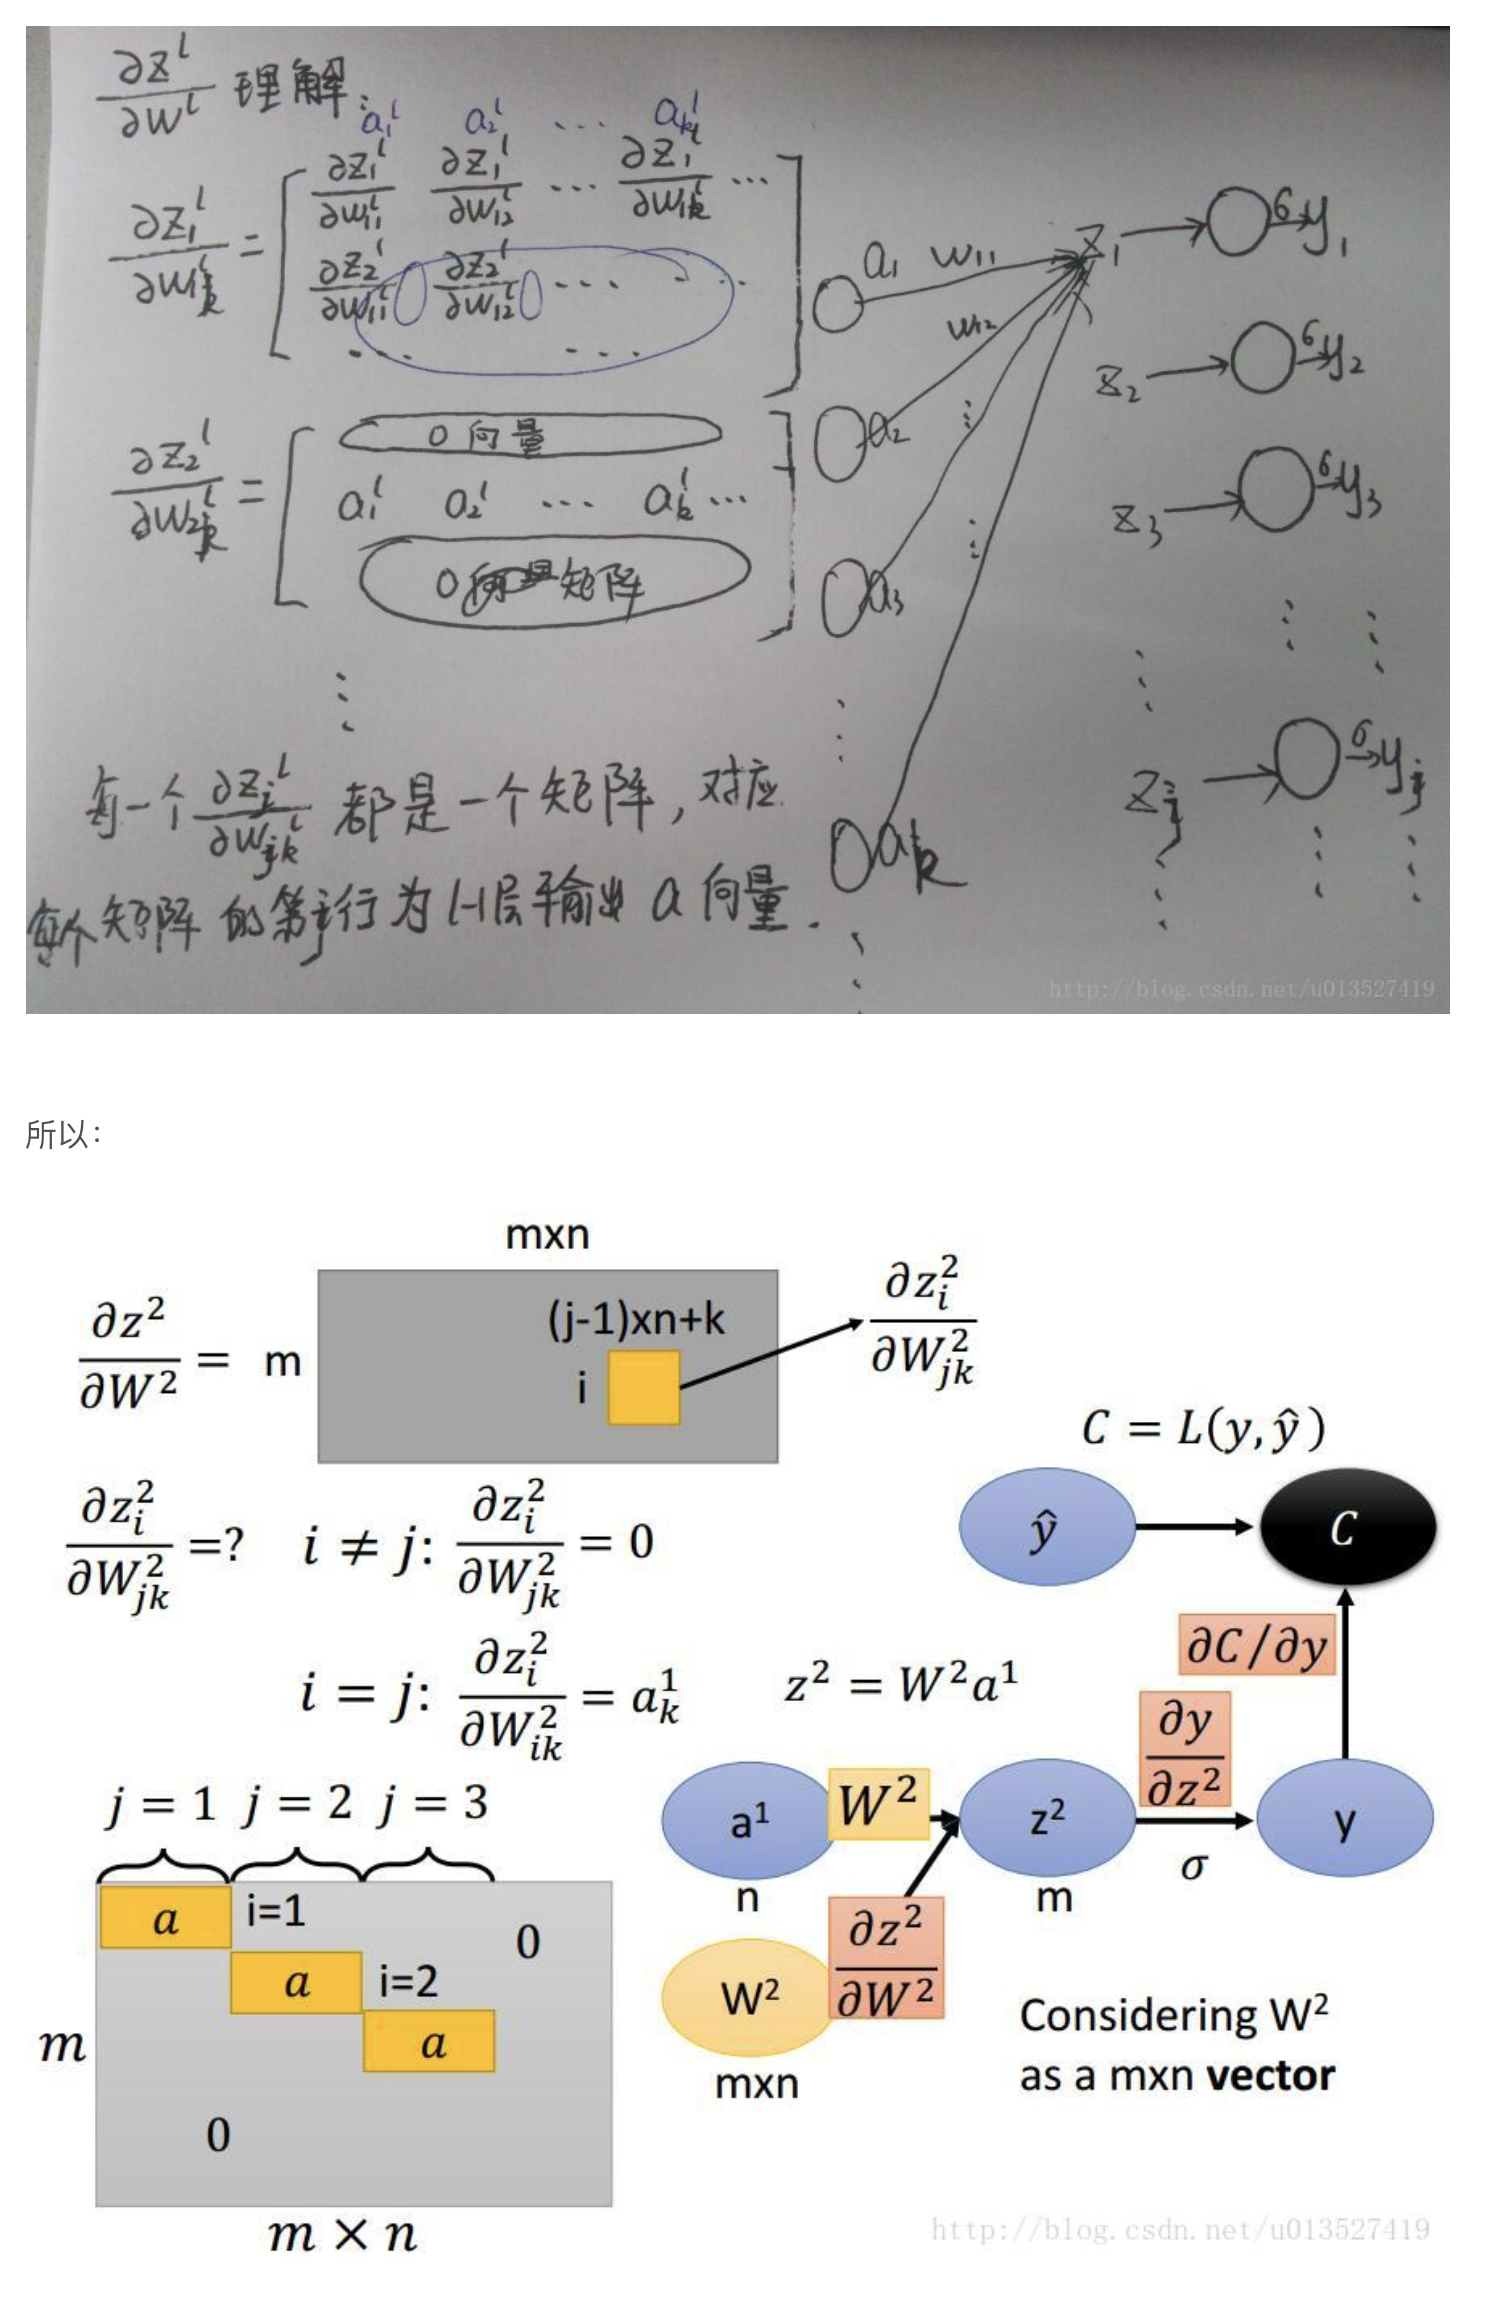 ∂z^l/∂w^l 理解:
a_1^l a_2^l ... a_k^l
∂z_1^l/∂w_{1k}^l = [ ∂z_1^l/∂w_{11}^l ∂z_1^l/∂w_{12}^l ... ∂z_1^l/∂w_{1k}^l ...
∂z_2^l/∂w_{11}^l 0 ∂z_2^l/∂w_{12}^l 0 ... ...
... ... ]
∂z_2^l/∂w_{2k}^l = [ 0向量
a_1^l a_2^l ... a_k^l ...
0 矩阵 ]
⋮
每一个 ∂z_j^l/∂w_{jk}^l 都是一个矩阵, 对应
每个矩阵的第j行为l-1层输出a向量.
a_1 w_11 z_1 σ y_1
w_12
a_2 z_2 σ y_2
a_3 z_3 σ y_3
⋮
a_k z_j σ y_j
⋮
http://blog.csdn.net/u013527419
所以：
mxn
∂z^2/∂W^2 = m
(j-1)xn+k
i
∂z_i^2/∂W_{jk}^2
C = L(y, ŷ)
∂z_i^2/∂W_{jk}^2 =? i ≠ j: ∂z_i^2/∂W_{jk}^2 = 0
ŷ C
i = j: ∂z_i^2/∂W_{ik}^2 = a_k^1
z^2 = W^2a^1
∂C/∂y
∂y/∂z^2
j = 1 j = 2 j = 3
a^1 W^2 z^2 σ y
n m
a i=1 0
a i=2
a
m
0
m × n
W^2 ∂z^2/∂W^2
mxn
Considering W^2
as a mxn vector
http://blog.csdn.net/u013527419